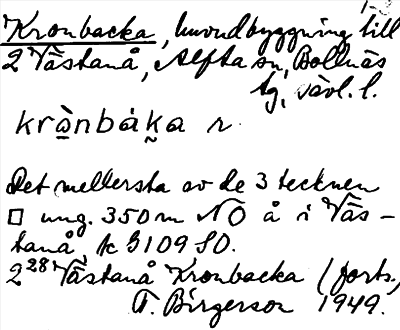 Kronbacka, huvudbyggning till
2 Västanå, Alfta sn, Bollnäs
tg, Gävl. l.
krὰnbáka r.
Det mellersta av de 3 tecknen
□ ung. 350 m NO å i Väs-
tanå, k 5109 SO.
2 28 Västanå Kronbacka (forts.)
T. Birgerson 1949.